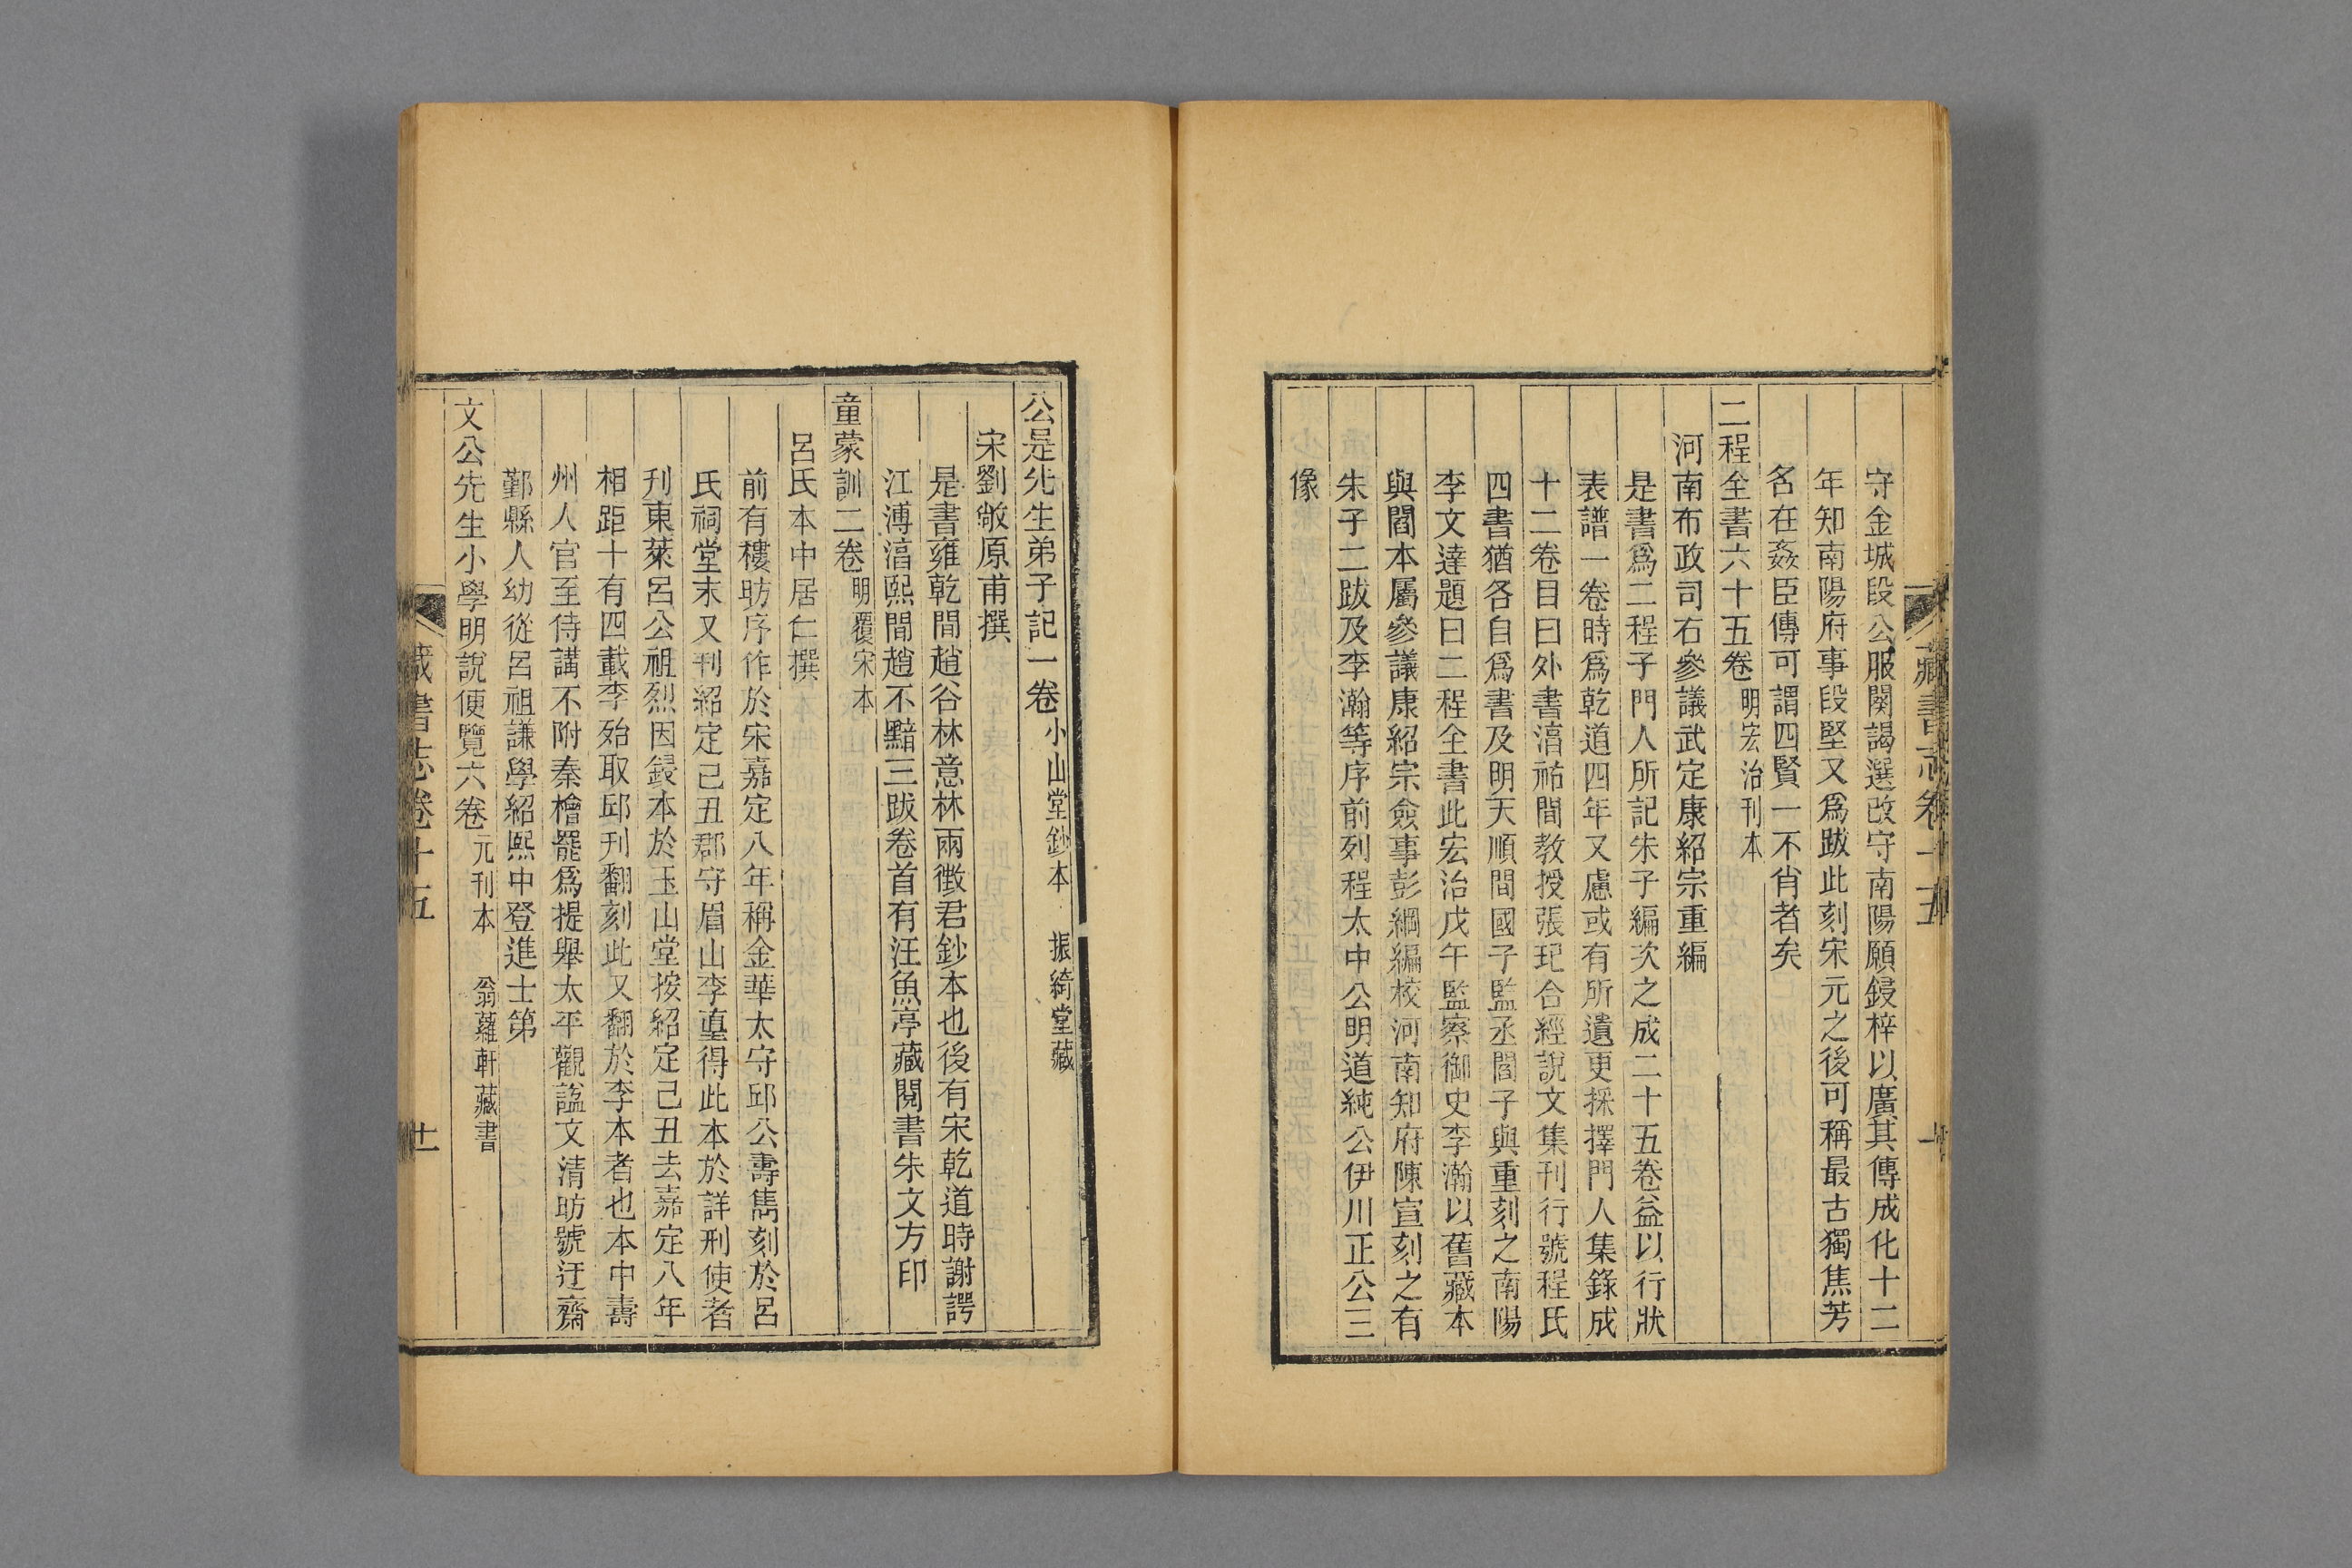 守金城段公服闋謁選改守南陽願鋟梓以廣其傳成化十二
年知南陽府事段堅又爲跋此刻宋元之後可稱最古獨焦芳
名在姦臣傳可謂四賢一不肖者矣
二程全書六十五卷 明宏治刊本
河南布政司右參議武定康紹宗重編
是書爲二程子門人所記朱子編次之成二十五卷益以行狀
表譜一卷時爲乾道四年又慮或有所遺更採擇門人集錄成
十二卷目曰外書湻祐間教授張玘合經說文集刊行號程氏
四書猶各自爲書及明天順間國子監丞閻子與重刻之南陽
李文達題曰二程全書此宏治戊午監察御史李瀚以舊藏本
與閻本屬參議康紹宗僉事彭綱編校河南知府陳宣刻之有
朱子二跋及李瀚等序前列程太中公明道純公伊川正公三
像
公是先生弟子記一卷 小山堂鈔本 振綺堂藏
宋劉敞原甫撰
是書雍乾間趙谷林意林兩徵君鈔本也後有宋乾道時謝諤
江溥湻熙間趙不黯三跋卷首有汪魚亭藏閱書朱文方印
童蒙訓二卷 明覆宋本
呂氏本中居仁撰
前有樓昉序作於宋嘉定八年稱金華太守邱公壽雋刻於呂
氏祠堂末又刊紹定己丑郡守眉山李𡌴得此本於詳刑使者
刋東萊呂公祖烈因鋟本於玉山堂按紹定己丑去嘉定八年
相距十有四載李殆取邱刊翻刻此又翻於李本者也本中壽
州人官至侍講不附秦檜罷爲提舉太平觀諡文清昉號迂齋
鄞縣人幼從呂祖謙學紹熙中登進士第
文公先生小學明說便覽六卷 元刊本 翁蘿軒藏書
藏書志卷十五 十一